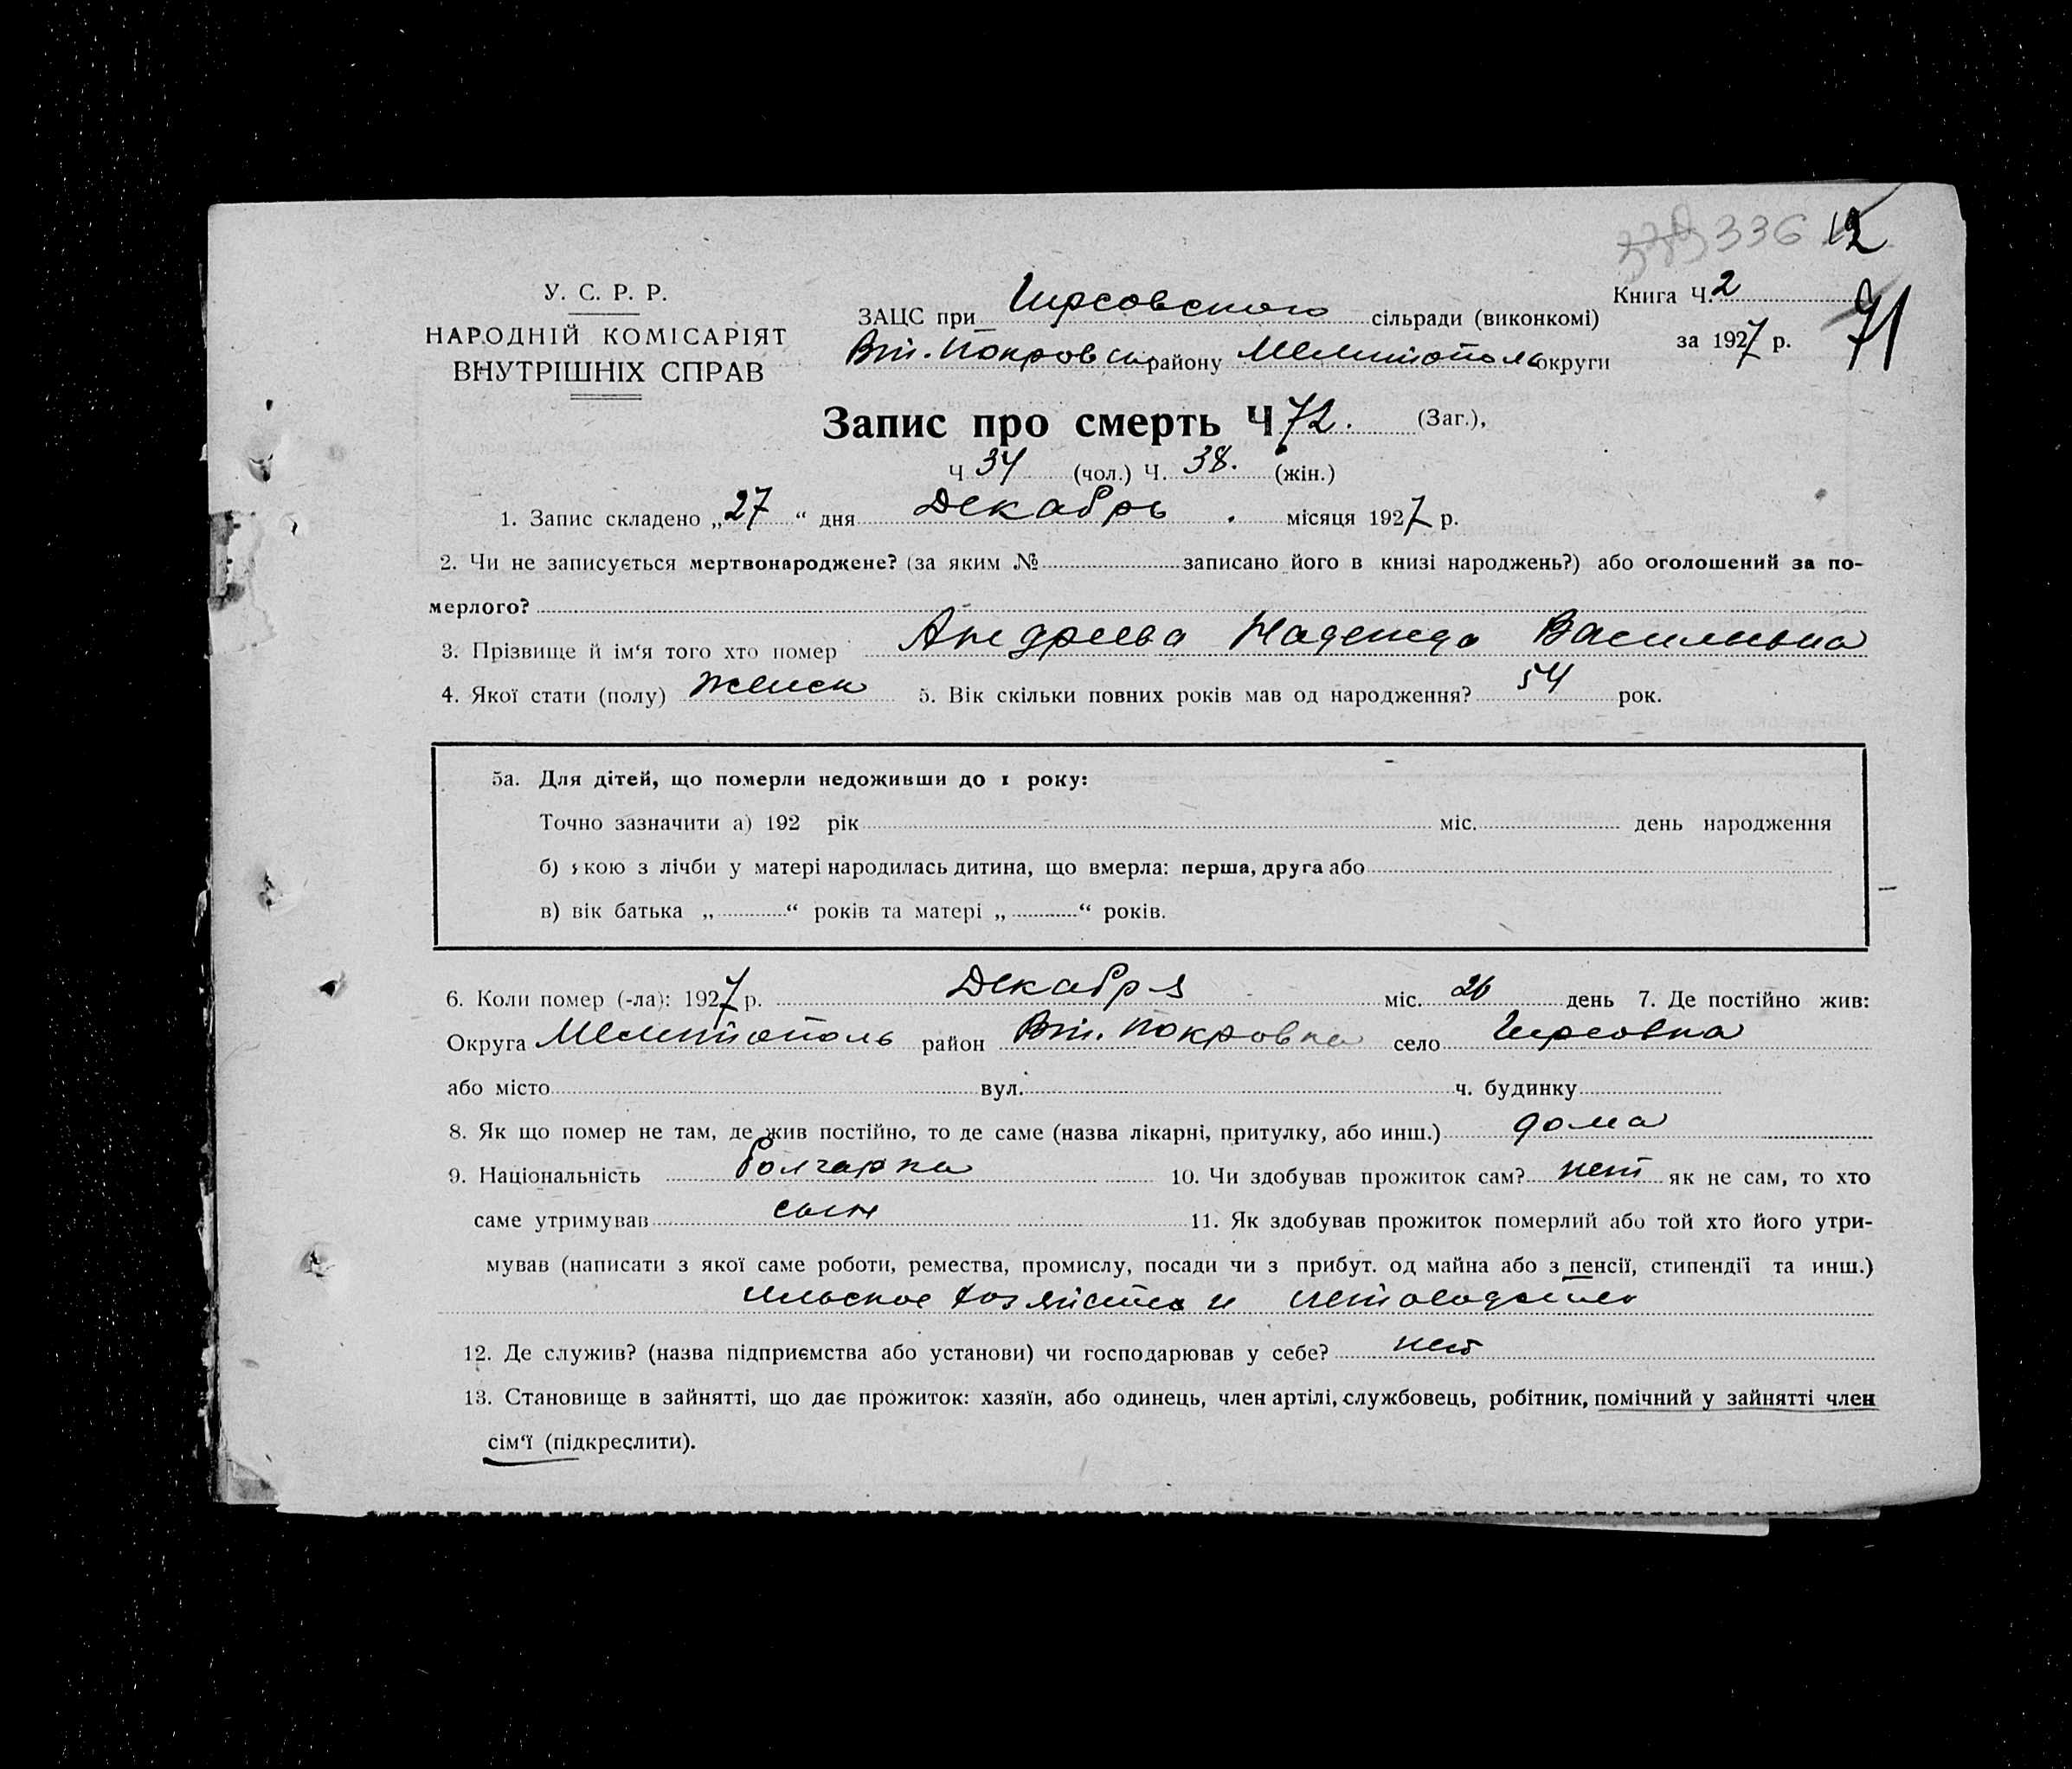 336 12
У. С. Р. Р.
НАРОДНІЙ КОМІСАРІЯТ
ВНУТРІШНІХ СПРАВ
ЗАЦС при Гирсовского сільради (виконкомі)
Вт. Покровск району Мелитополь округи
Книга Ч. 2
за 1927 р.
71
Запис про смерть Ч 72. (Заг.),
Ч 34 (чол.) Ч. 38. (жін.)
1. Запис складено „27“ дня Декабрь місяця 1927 р.
2. Чи не записується мертвонароджене? (за яким № записано його в книзі народжень?) або оголошений за по-
мерлого?
3. Прізвище й ім‘я того хто помер Андреева Надежда Васильевна
4. Якої стати (полу) женск 5. Вік скільки повних років мав од народження? 54 рок.
5а. Для дітей, що померли недоживши до 1 року:
Точно зазначити а) 192 рік міс. день народження
б) якою з лічби у матері народилась дитина, що вмерла: перша, друга або
в) вік батька „ “ років та матері „ “ років.
6. Коли помер (-ла): 1927 р. Декабря міс. 26 день 7. Де постійно жив:
Округа Мелитополь район Вт. Покровка село Гирсовка
або місто вул. ч. будинку
8. Як що помер не там, де жив постійно, то де саме (назва лікарні, притулку, або инш.) дома
9. Національність болгарка 10. Чи здобував прожиток сам? нет як не сам, то хто
саме утримував сын 11. Як здобував прожиток померлий або той хто його утри-
мував (написати з якої саме роботи, ремества, промислу, посади чи з прибут. од майна або з пенсії, стипендії та инш.)
сельское
12. Де служив? (назва підприємства або установи) чи господарював у себе? нет
13. Становище в зайнятті, що дає прожиток: хазяїн, або одинець, член артілі, службовець, робітник, помічний у зайнятті член
сім‘ї (підкреслити).